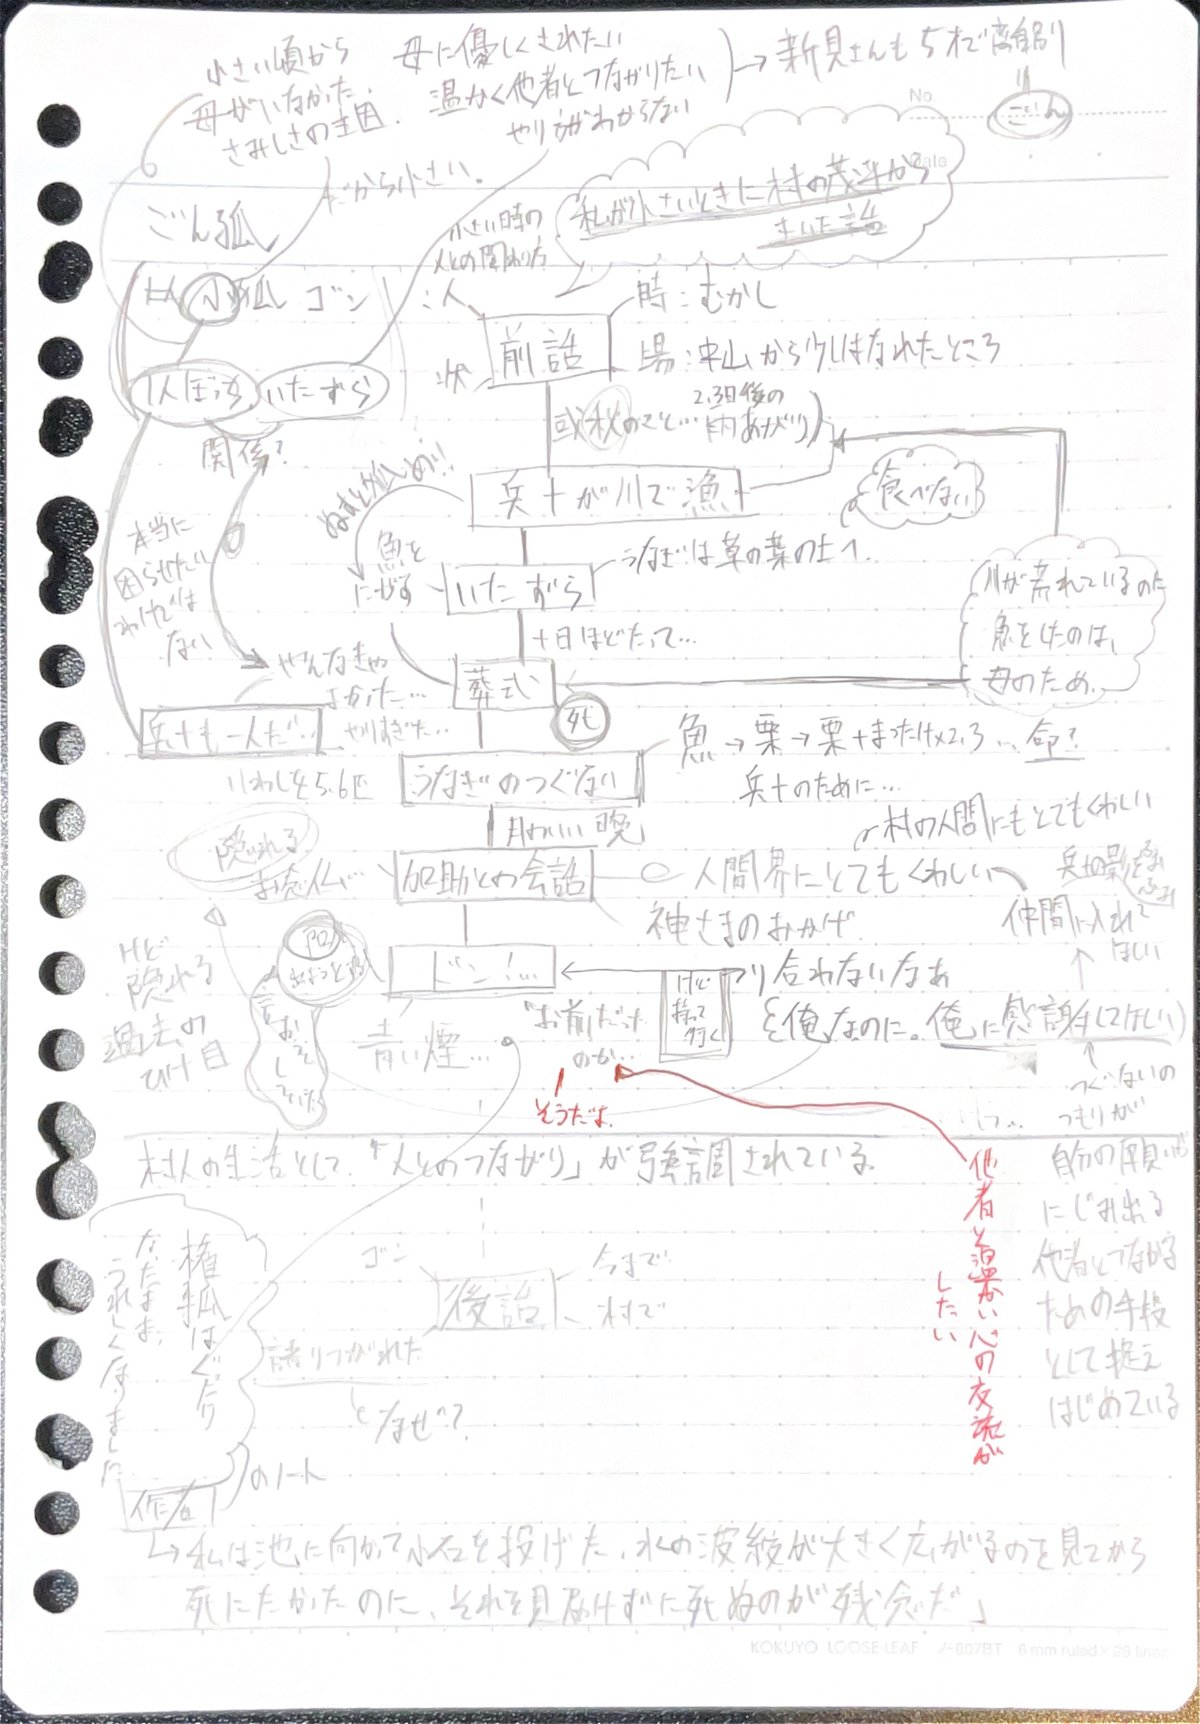 小さい頃から
母がいなかった。
さみしさの主因。
母に優しくされたい
温かく他者とつながりたい
やり方がわからない
→新見さんも5才で離別
ごん
No
Date
だから小さい。
私が小さいときに村の茂平から
きいた話
ごん狐
小さい時の
人との関わり方
小狐 ゴン
人
時：むかし
前話
場：中山から少しはなれたところ
状
1人ぼっち
いたずら
関係？
或秋のこと…
2,3日後の
雨あがり
ぬすと狐め!!
兵十が川で漁
食べない
本当に
困らせたい
わけでは
ない
魚を
にがす
いたずら
うなぎは草の葉の上へ
川が荒れているのに
魚をとったのは、
母のため。
十日ほどたって…
やんなきゃ
よかった…
やりすぎた…
葬式
死
兵十も一人だ…
うなぎのつぐない
魚→栗→栗+まつたけ×2,3…命？
兵十のために…
いわしを5.6匹
月のいい晩
村の人間にもとてもくわしい
隠れる
お念仏…
加助との会話
人間界にとてもくわしい
兵十の影をふみふみ
神さまのおかげ
仲間に入れて
ほしい
けど
隠れる
過去の
ひけ目
ドン！…
つり合わないなあ
けど
持って
行く
青い煙…
「お前だった
のか…
俺なのに。俺に感謝してほしい
そうだよ。
つぐないの
つもりが
村人の生活として、「人とのつながり」が強調されている。
自分の願いが
にじみ出る
他者とつながる
ための手段
として捉え
はじめている
他者と温かい心の交流が
したい
権狐はぐったり
なったまま、
うれしくなりました
ゴン
今まで
後話
村で
語りつがれた
となぜ？
作者
のノート
→私は池に向かって小石を投げた、水の波紋が大きく広がるのを見てから
死にたかったのに、それを見届けずに死ぬのが残念だ」
KOKUYO LOOSE-LEAF ノ-807BT 6 mm ruled×28 lines